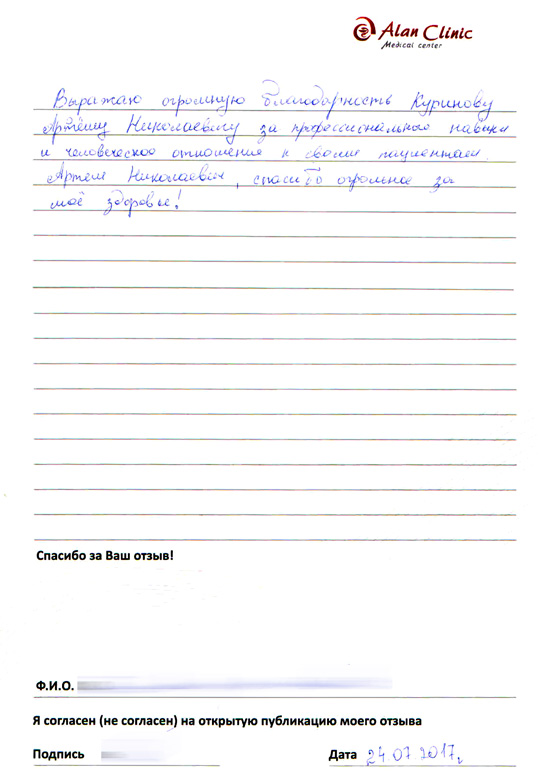 Alan Clinic
Medical center
Выражаю огромную благодарность Куринову
Артёму Николаевичу за профессиональные навыки
и человеческое отношение к своим пациентам.
Артём Николаевич, спасибо огромное за
моё здоровье!
Спасибо за Ваш отзыв!
Ф.И.О.
Я согласен (не согласен) на открытую публикацию моего отзыва
Подпись Дата 24.07.2017г.